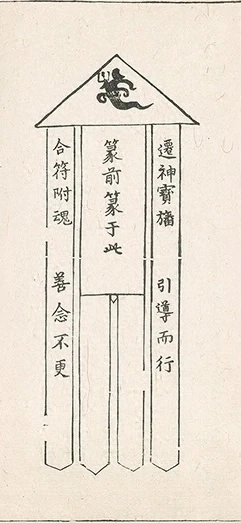 遷神寶旛　引導而行
篆前篆于此
合符附魂　善念不更